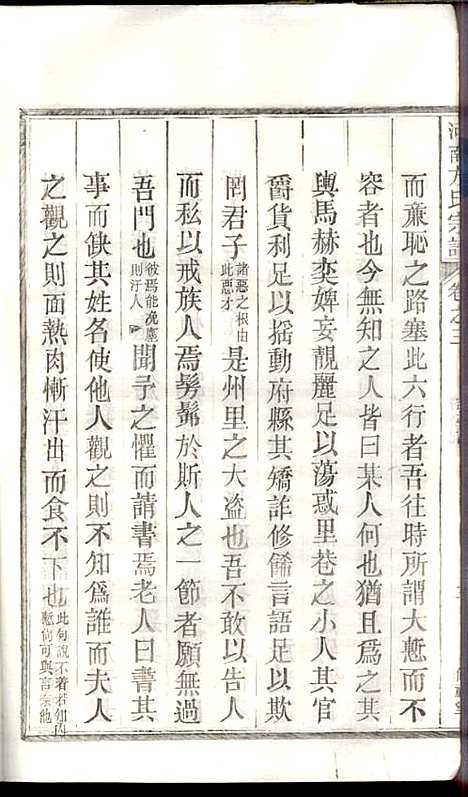 而亷恥之路塞此六行者吾往時所謂大慙而不
容者也今無知之人皆曰某人何也猶且爲之其
輿馬赫奕婢妾靚麗足以蕩惑里巷之小人其官
爵貨利足以搖動府縣其矯詐修餙言語足以欺
罔君子諸惡之根由此悪才是州里之大盗也吾不敢以告人
而私以戒族人焉髣髴於斯人之一節者願無過
吾門也彼焉能凂塵則汙人聞子之懼而請書焉老人曰書其
事而缺其姓名使他人觀之則不知爲誰而夫人
之觀之則面熱肉慚汗出而食不下也此句說不着若知内慙尚可與言奈他